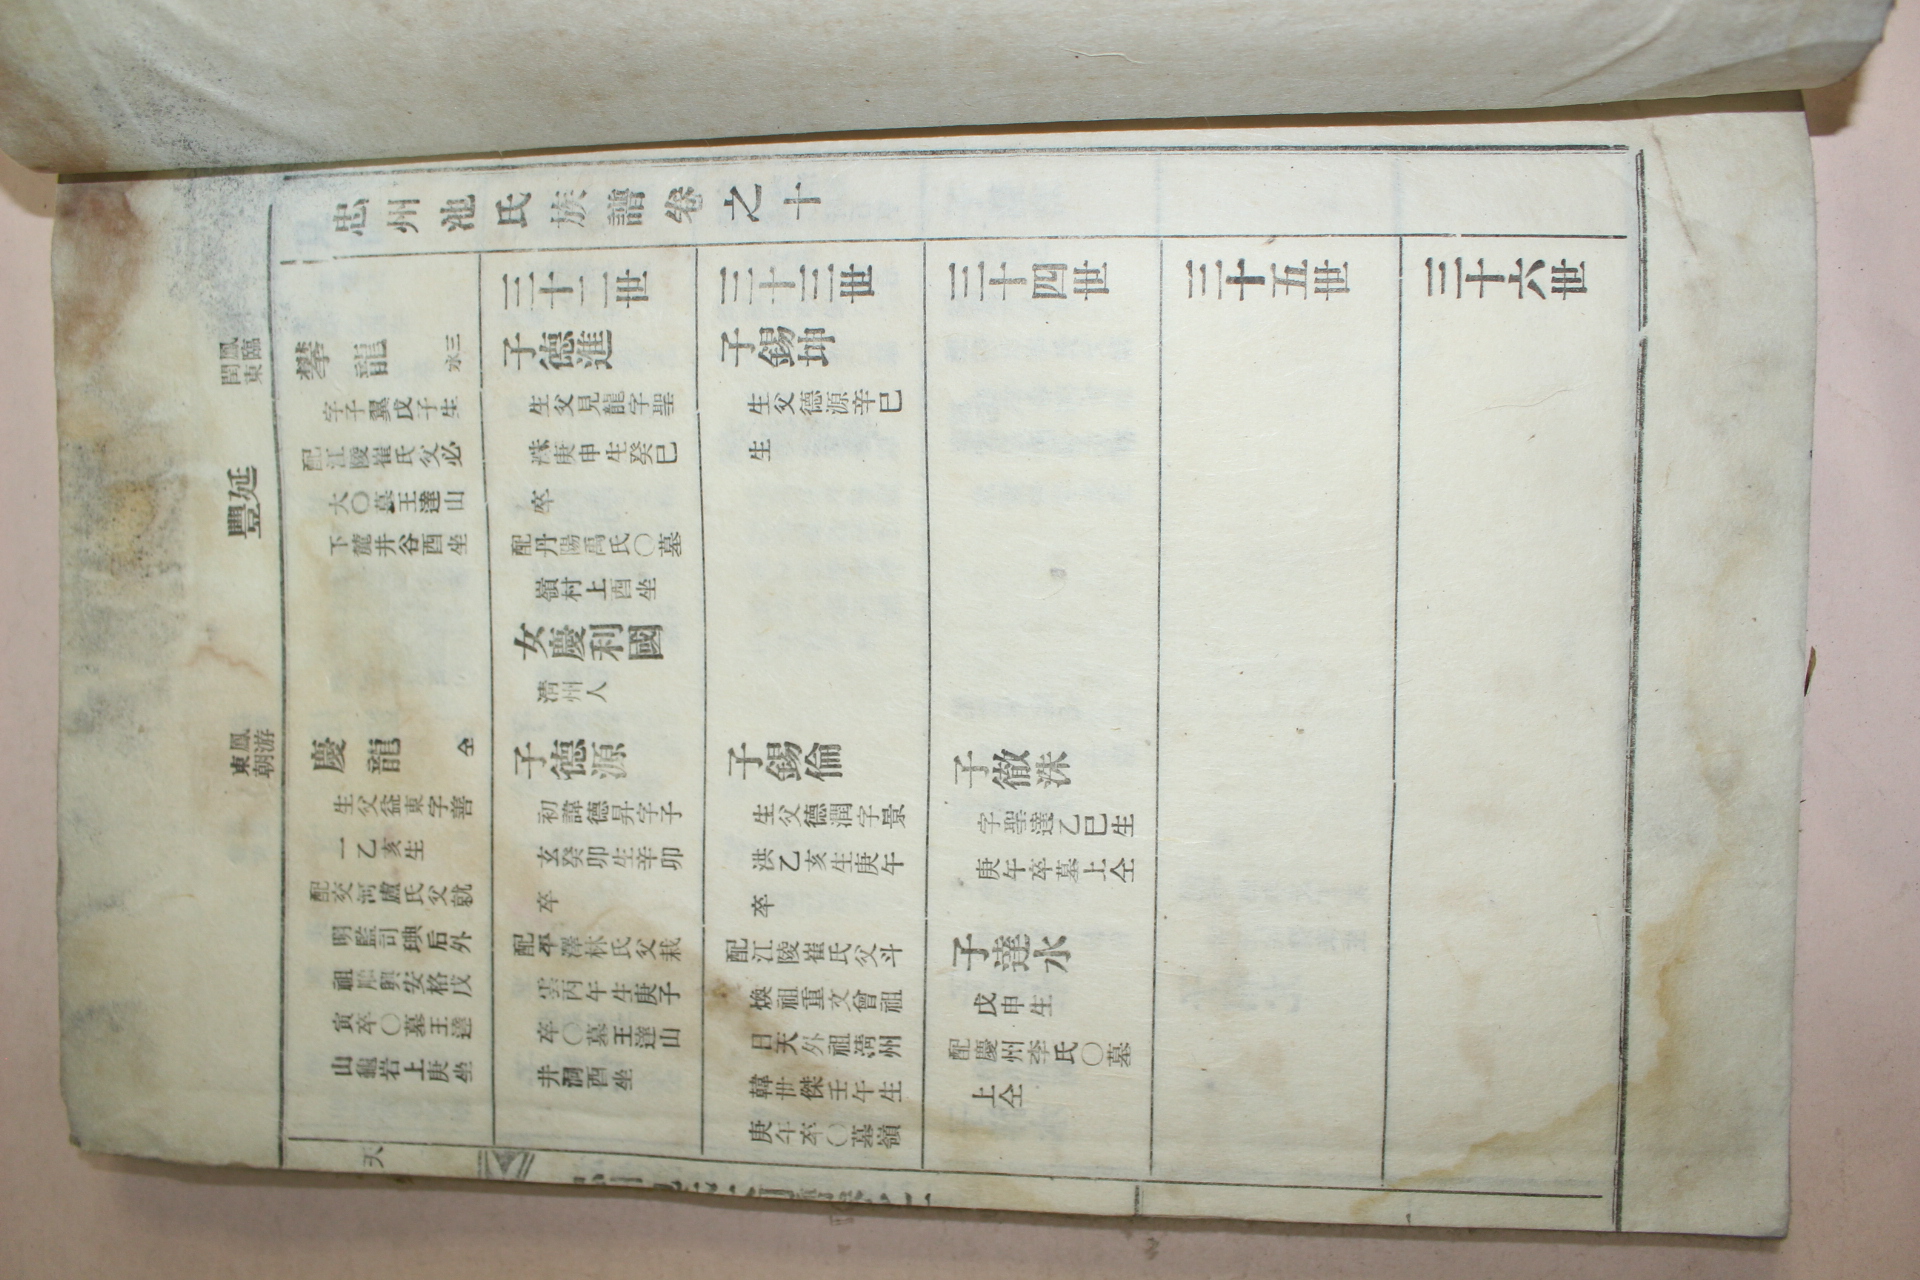 忠州池氏族譜卷之十
三十二世
三十三世
三十四世
三十五世
三十六世
鳳臨
閏東
延豐
鳳游
東朝
攀龍
三
水
字子翼戊子生
配江陵崔氏父必
大〇墓王達山
下麓井谷酉坐
慶龍
仝
生父益東字善
一乙亥生
配交河盧氏父就
明監司㙉后外
祖 興安格戊
寅卒〇墓王達
山龜岩上庚坐
子德進
生父見龍字聖
洙庚申生癸巳
卒
配丹陽禹氏〇墓
嶺村上酉坐
女慶利國
清州人
子德源
初諱德昇字子
玄癸卯生辛卯
卒
配平澤林氏父栽
雲丙午生庚子
卒〇墓王達山
井洞酉坐
子錫坤
生父德源辛巳
生
子錫倫
生父德潤字景
洪乙亥生庚午
卒
配江陵崔氏父斗
煥祖重文曾祖
日天外祖淸州
韓世傑壬午生
庚午卒〇墓嶺
子徹洙
字聖達乙巳生
庚午卒墓上仝
子達水
戊申生
配慶州李氏〇墓
上仝
天